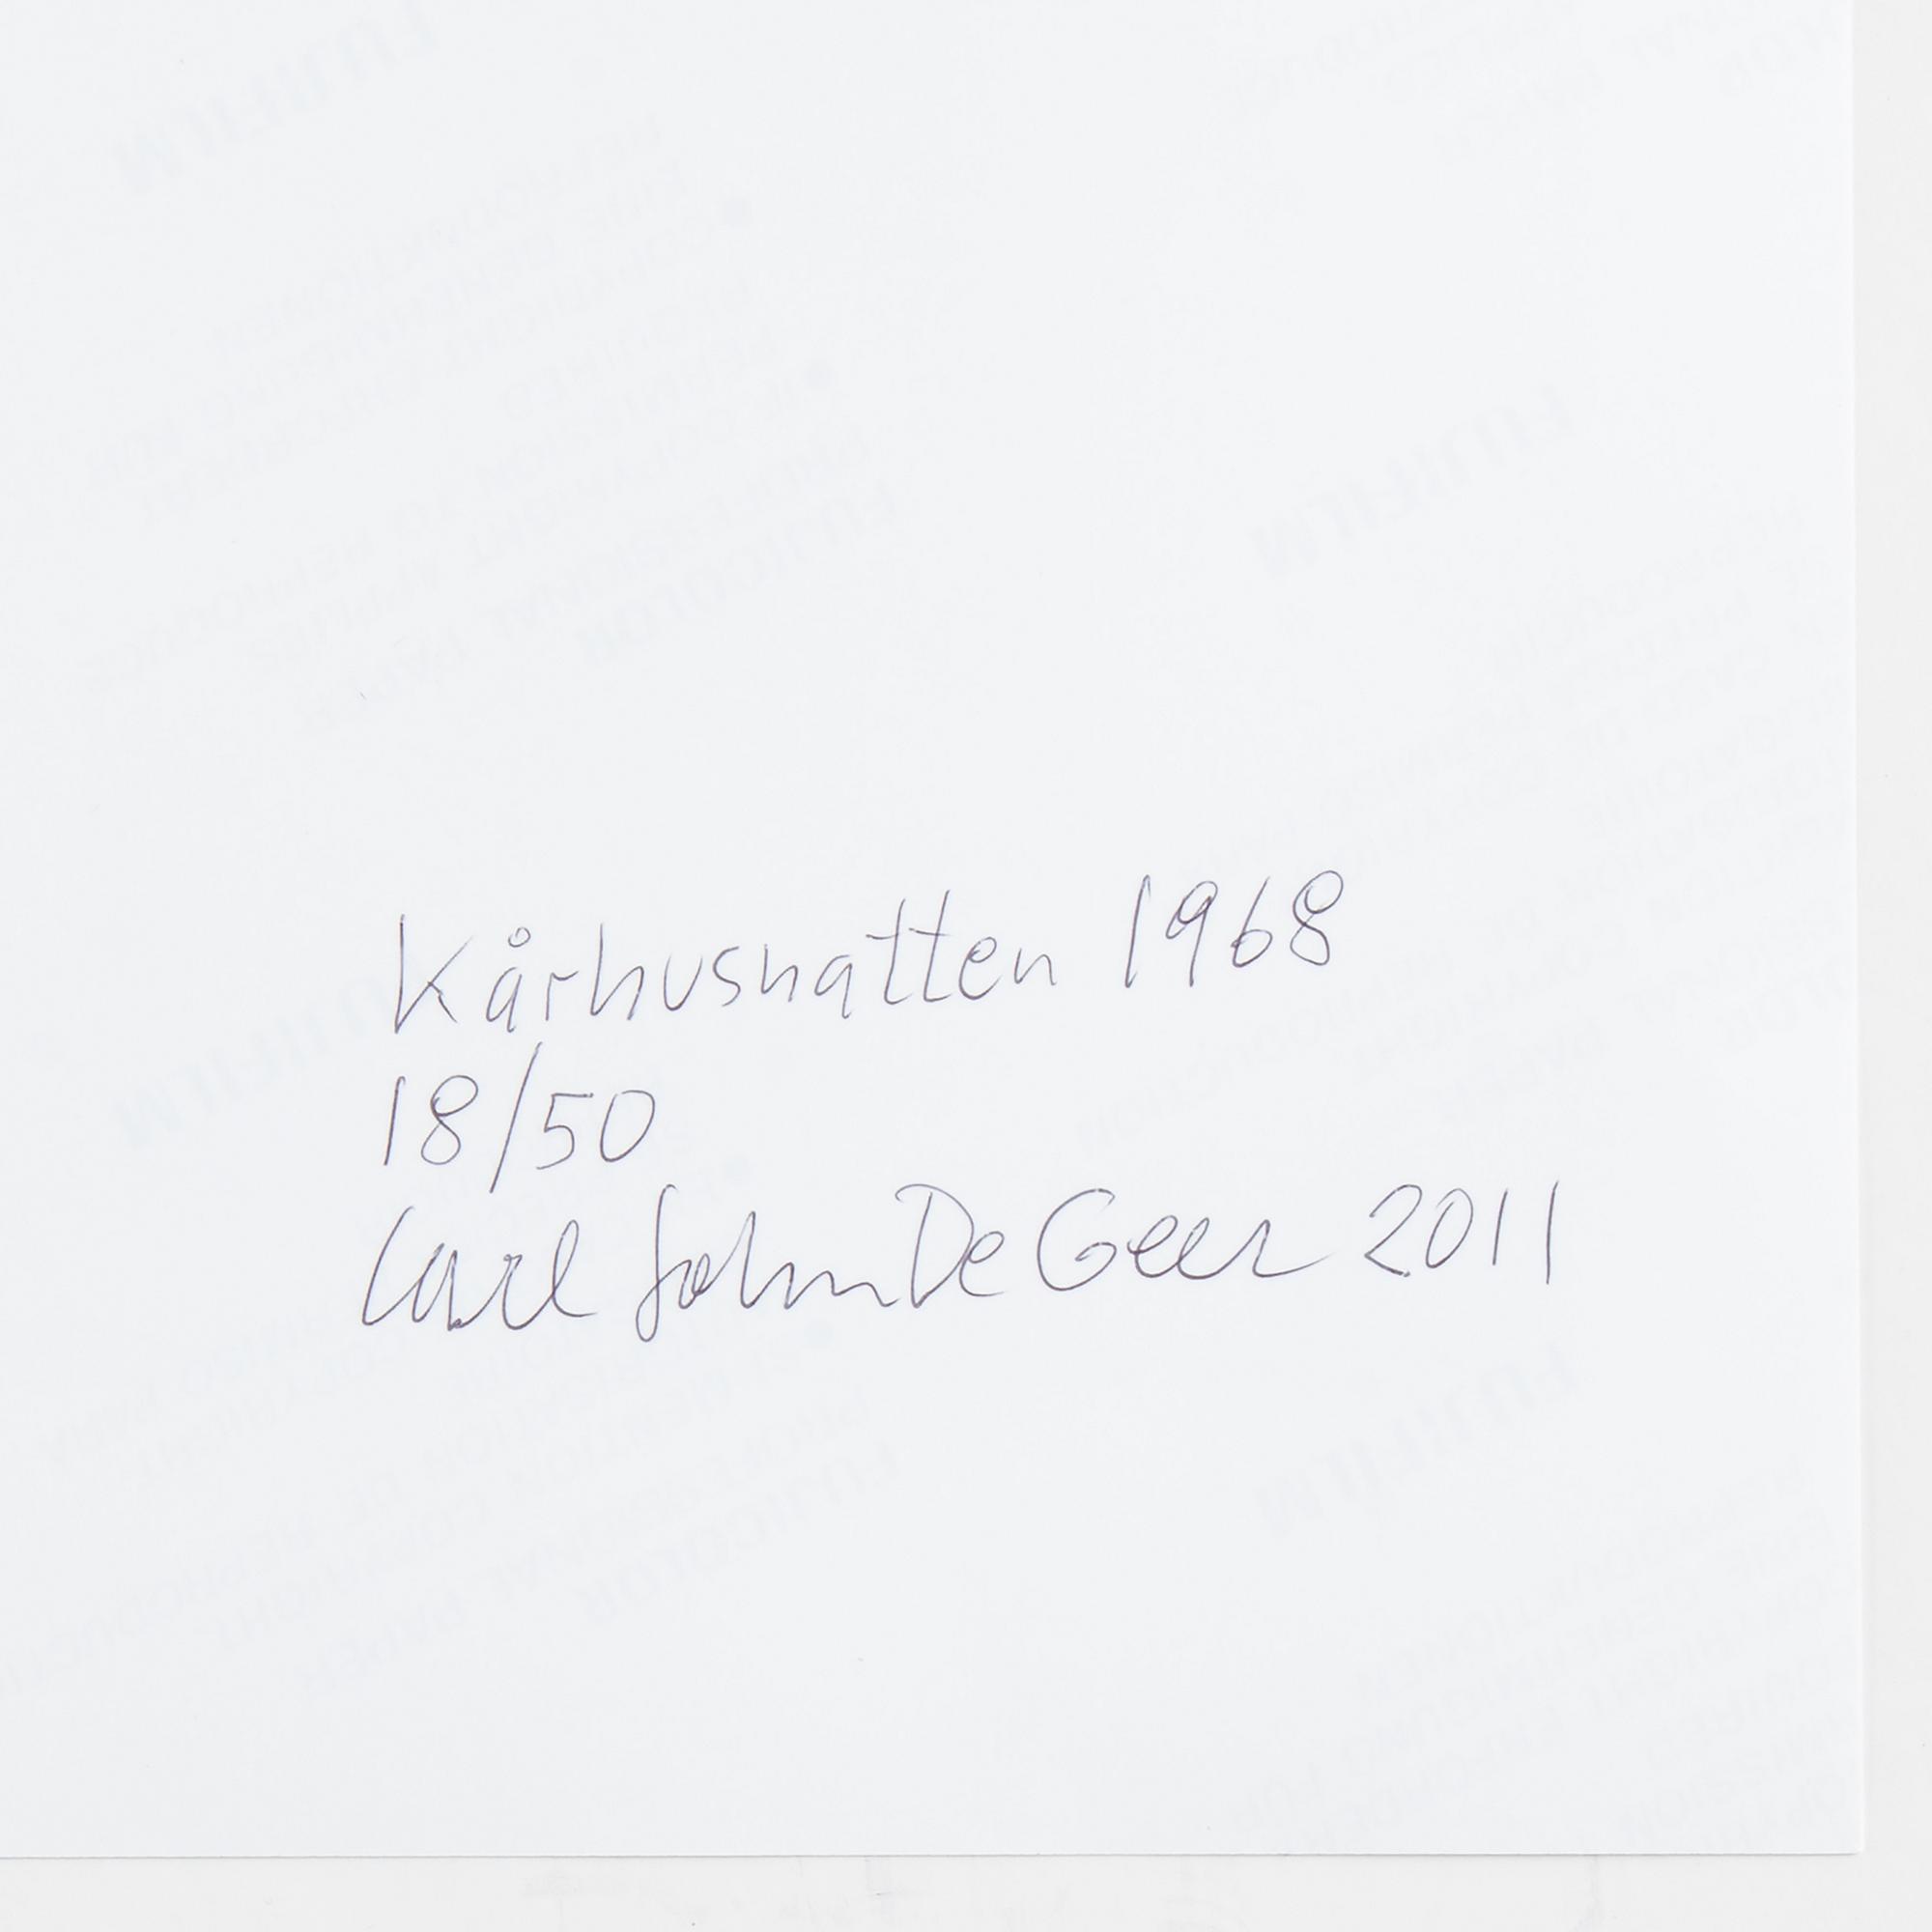 Kårhusnatten 1968
18/50
Carl Johan De Geer 2011